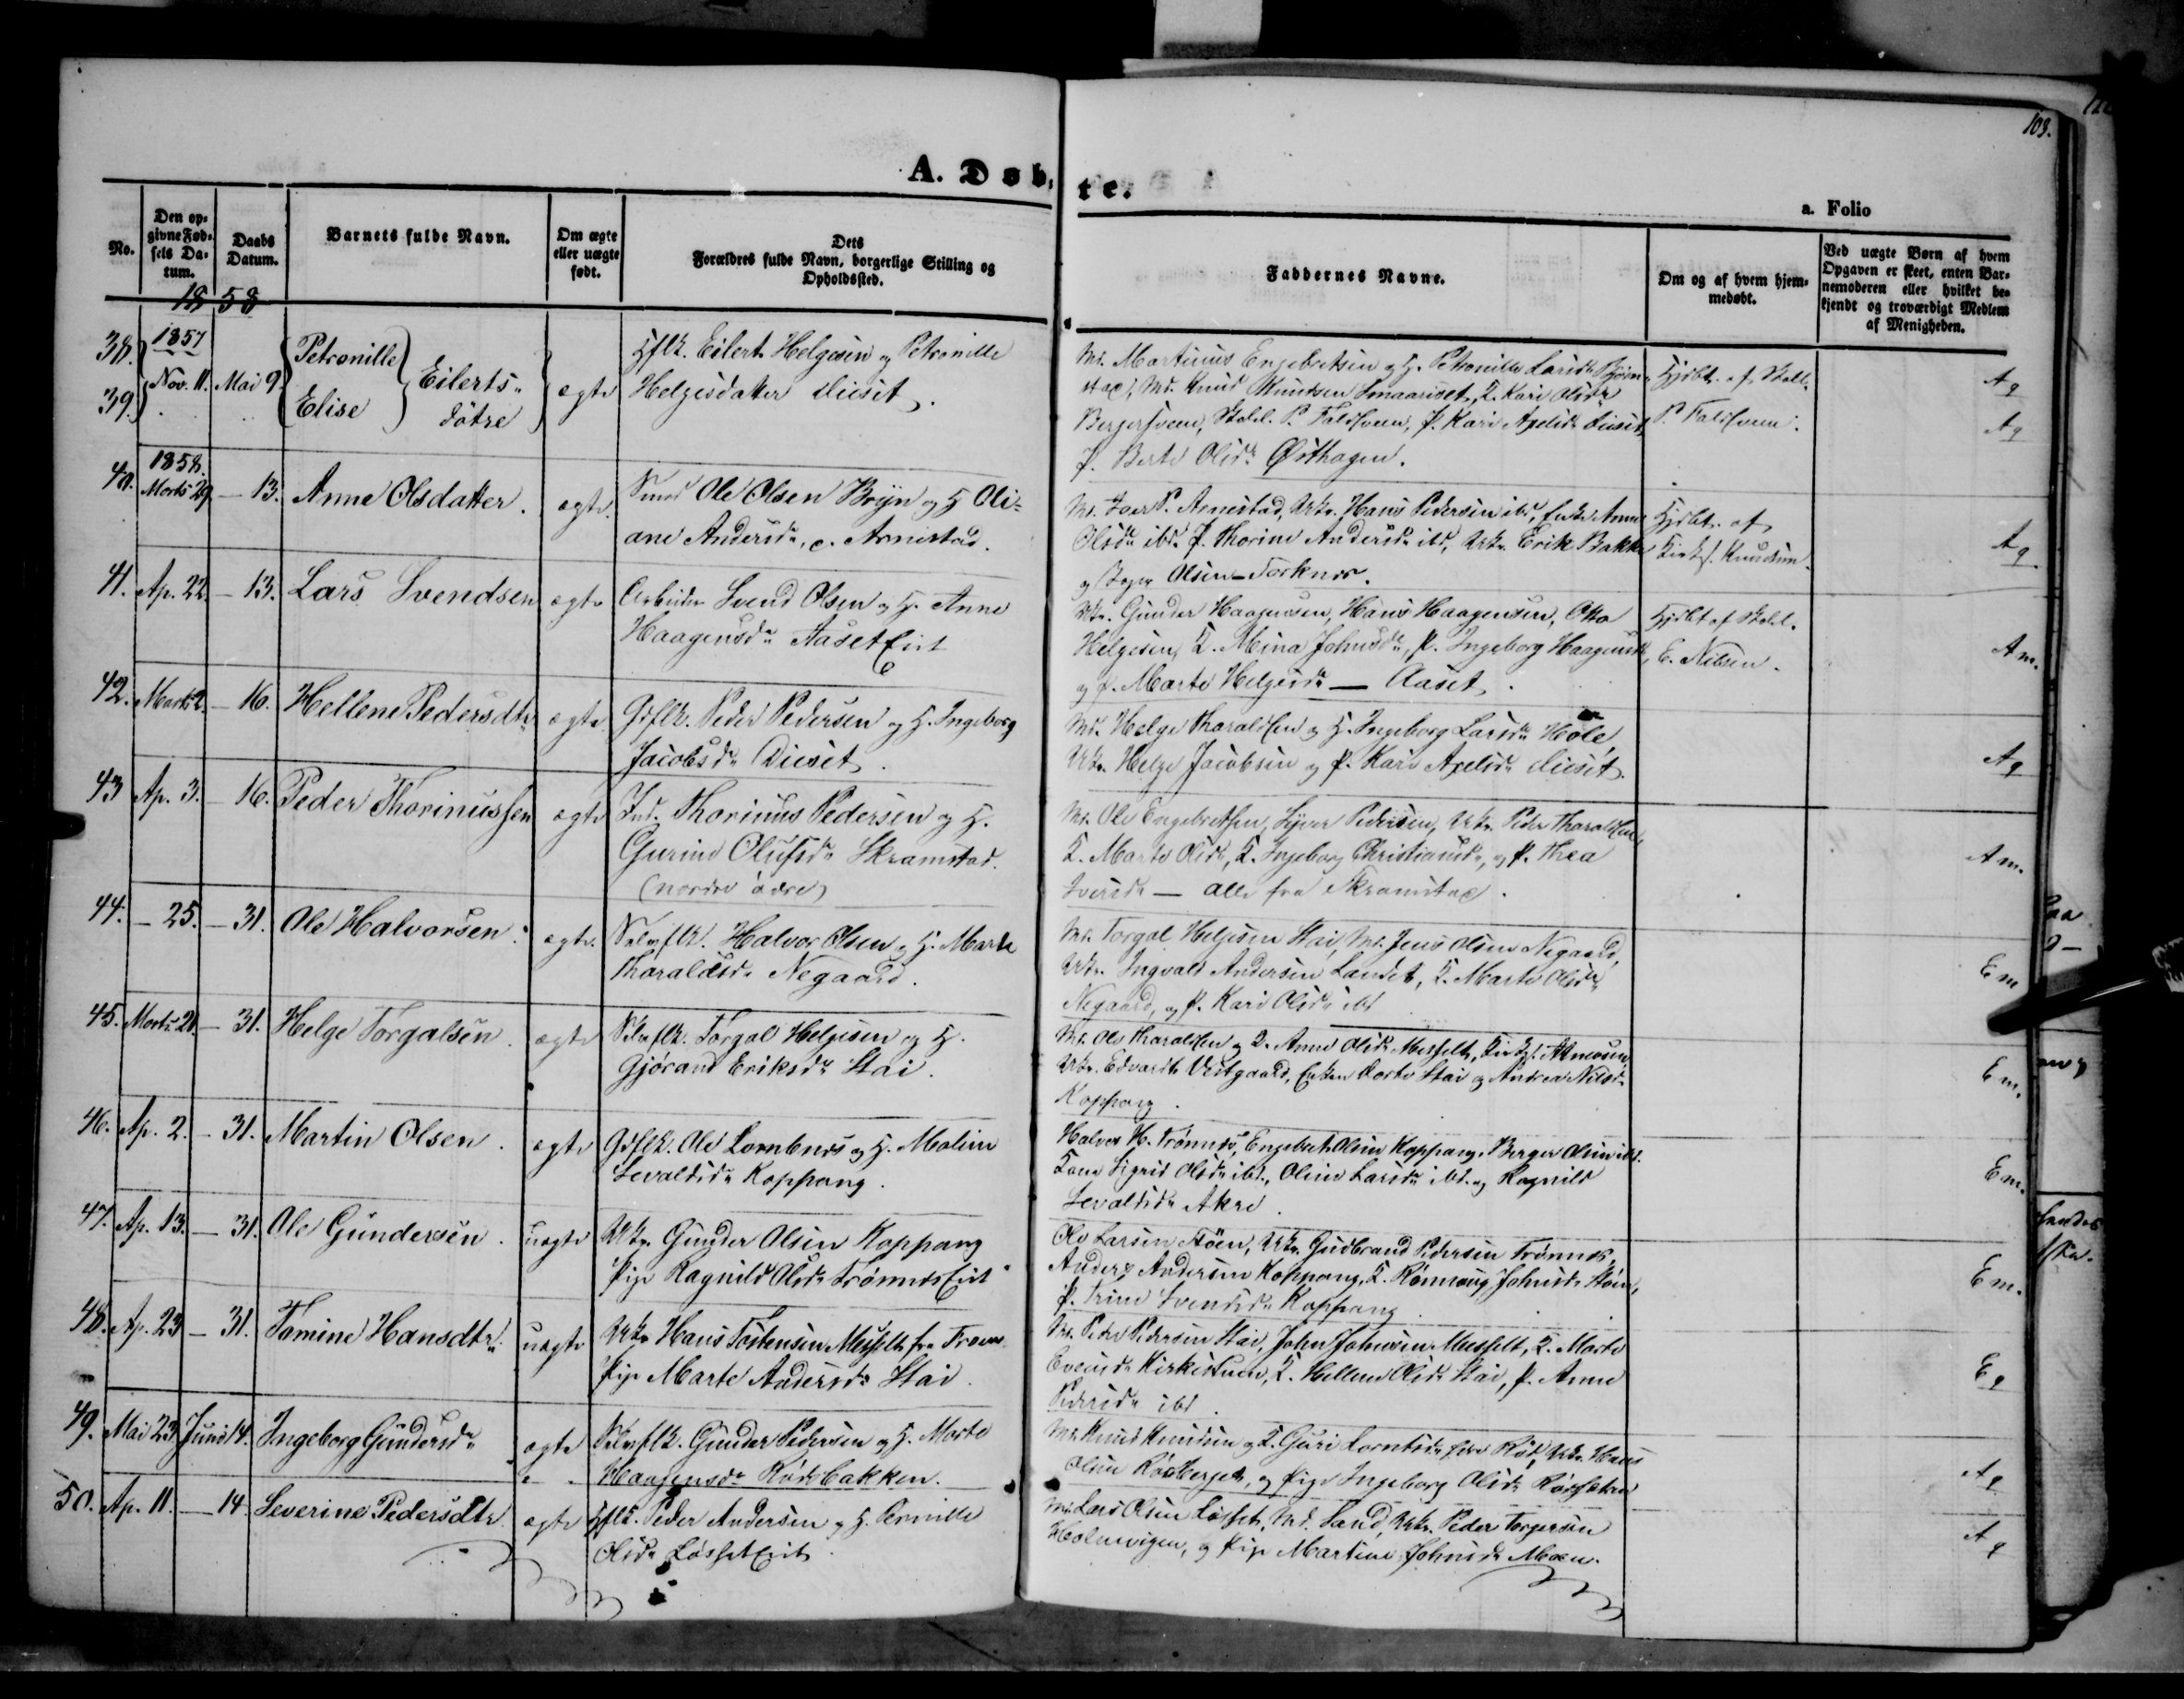 108.
A. Døb,
te.
a. Folio
No.
Den op=
givne Fød=
sels Da=
tum.
Daabs
Datum.
Barnets fulde Navn.
Om ægte
eller uægte
født.
Dets
Forældres fulde Navn, borgerlige Stilling og
Opholdssted.
Faddernes Navne.
Om og af hvem hjem=
medøbt.
Ved uægte Børn af hvem
Opgaven er skeet, enten Bar=
nemoderen eller hvilket be=
kjendt og troværdigt Medlem
af Menigheden.
1858
38. 1857 Petronille
39. Nov. 11. Mai 9. Eilerts=
Elise døtre ægte
Hflk. Eilert Helgesen og Petronille
Helgesdatter Dieset.
Md. Martinus Engebretsen og H. Petronille Larsdr
Md. Knud Knudsen Smaariset, K. Kari Olsdr
P. Kari Axelsdr Dieset,
P. Berte Olsdr Østhagen.
Hjdbt. af
Ag
Ag
40. 1858. Marts 29 – 13. Anne Olsdatter. ægte.
Ole Olsen Bryn og H Oli=
ane Andersdr. Arnestad.
Md. Iver P. Arnestad, Ukr. Hans Pedersen ibd, Enke Anne
Olsdr ibd. P. Thorine Andersdr ibd, Ukr. Erik Bakke
og Olsen – Torknes.
Hjdbt. af
Kirks. Knudsen.
Ag
41. Ap. 22. – 13. Lars Svendsen ægte
Arbeider Svend Olsen og H. Anne
Haagensdr Aaset Eie
Ukr. Gunder Haagensen, Hans Haagensen, Otto
Helgesen, K. Mina Johnsdr, P. Ingeborg Haagensdr,
og P. Marte Helgesdr – Aaset.
Hjdbt af Skoll.
E. Nilsen.
Am.
42. Marts 2. – 16. Hellene Pedersdtr ægte
Gdflk. Peder Pedersen og H. Ingeborg
Jacobsdr Dieset.
Md. Helge Tharaldsen og H. Ingeborg Larsdr Hole,
Ukr. Helge Jacobsen og P. Kari Axelsdr Dieset.
Ag
43 Ap. 3. – 16. Peder Thorinussen ægte
Ind. Thorinus Pedersen og H.
Gurine Olufsdr Skramstad.
(nordre øvre)
Md. Ole Engebretsen, Syver Pedersen, Ukr. Peder Tharaldsen,
K. Marte Olsdr, K. Ingeborg Christiansdr, og P. Thea
Iversdr – alle fra Skramstad.
Am.
44. – 25. – 31. Ole Halvorsen. ægte.
Selveflk. Halvor Olsen og H. Marte
Tharaldsdr Negaard.
Md. Torgal Helgesen Stai, Md. Jens Olsen Negaard,
Ukr. Ingvald Andersen Landet, K. Marte Olsdr
Negaard, og P. Kari Olsdr ibd
Em
45. Marts 21. – 31. Helge Torgalsen. ægte
Selveflk. Torgal Helgesen og H.
Gjørand Eriksdr Stai.
Md. Ole Tharaldsen og K. Anne Olsdr Messelt,
Ukr. Edvardt Vestgaard, Enken Dorte Stai og Andrea Nilsdr
Koppang.
Em.
46. Ap. 2. – 31. Martin Olsen. ægte
Gdflk. Ole Lornbnes og H. Maline
Sevaldsdr Koppang.
Halvor H. Trønnes, Engebret Olsen Koppang, Berger Olsen ibd.
Kone Sigrid Olsdr ibd., Oline Larsdr ibd. og Ragnild
Sevaldsdr Akre.
Em.
47. Ap. 13. – 31. Ole Gundersen. uægte
Ukr. Gunder Olsen Koppang
Pige Ragnild Olsdr Trønnes Eie
Ole Larsen Støen, Ukr. Gudbrand Pedersen Trønnes,
Anders Andersen Koppang, K. Rønnaug Johnsdr Støen,
P. Trine Svendsdr Koppang
Em.
48. Ap. 23 – 31. Tomine Hansdtr. uægte
Ukr. Hans Tostensen Messelt fra
Pige Marte Andersdr Stai.
Md. Peder Pedersen Stai, John Johnsen Messelt, K. Marte
Evensdr K. Hellene Olsdr Stai, P. Anne
Pedersdr ibd.
Eg
49. Mai 23 Juni 14. Ingeborg Gundersdr ægte
Selveflk. Gunder Pedersen og H. Marte
Haagensdr Rødsbakken.
Md Knud Knudsen og K. Guri Lorntsdr Ukr. Hans
Olsen Rødberget, og Pige Ingeborg Olsdr
Ag
50. Ap. 11. – 14. Severine Pedersdtr ægte
Hflk. Peder Andersen og H. Pernille
Olsdr Løsset Eie.
Md. Lars Olsen Løsset, Md. Sand, Ukr. Peder Torgersen
Holmvigen, og Pige Martine Johnsdr Moen.
Ag